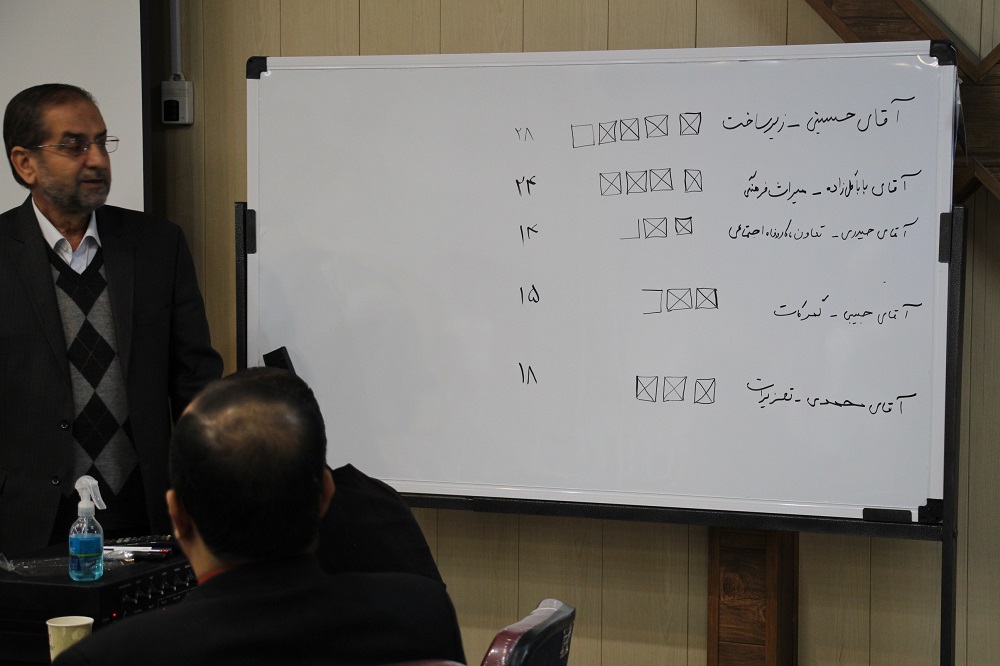 آقای حسینی - زیرساخت ۲۸
آقای باباگل‌زاده - میراث فرهنگی ۲۴
آقای حیدری - تعاون، کار و رفاه اجتماعی ۱۴
آقای حبیبی - گمرکات ۱۵
آقای محمدی - تعزیرات ۱۸